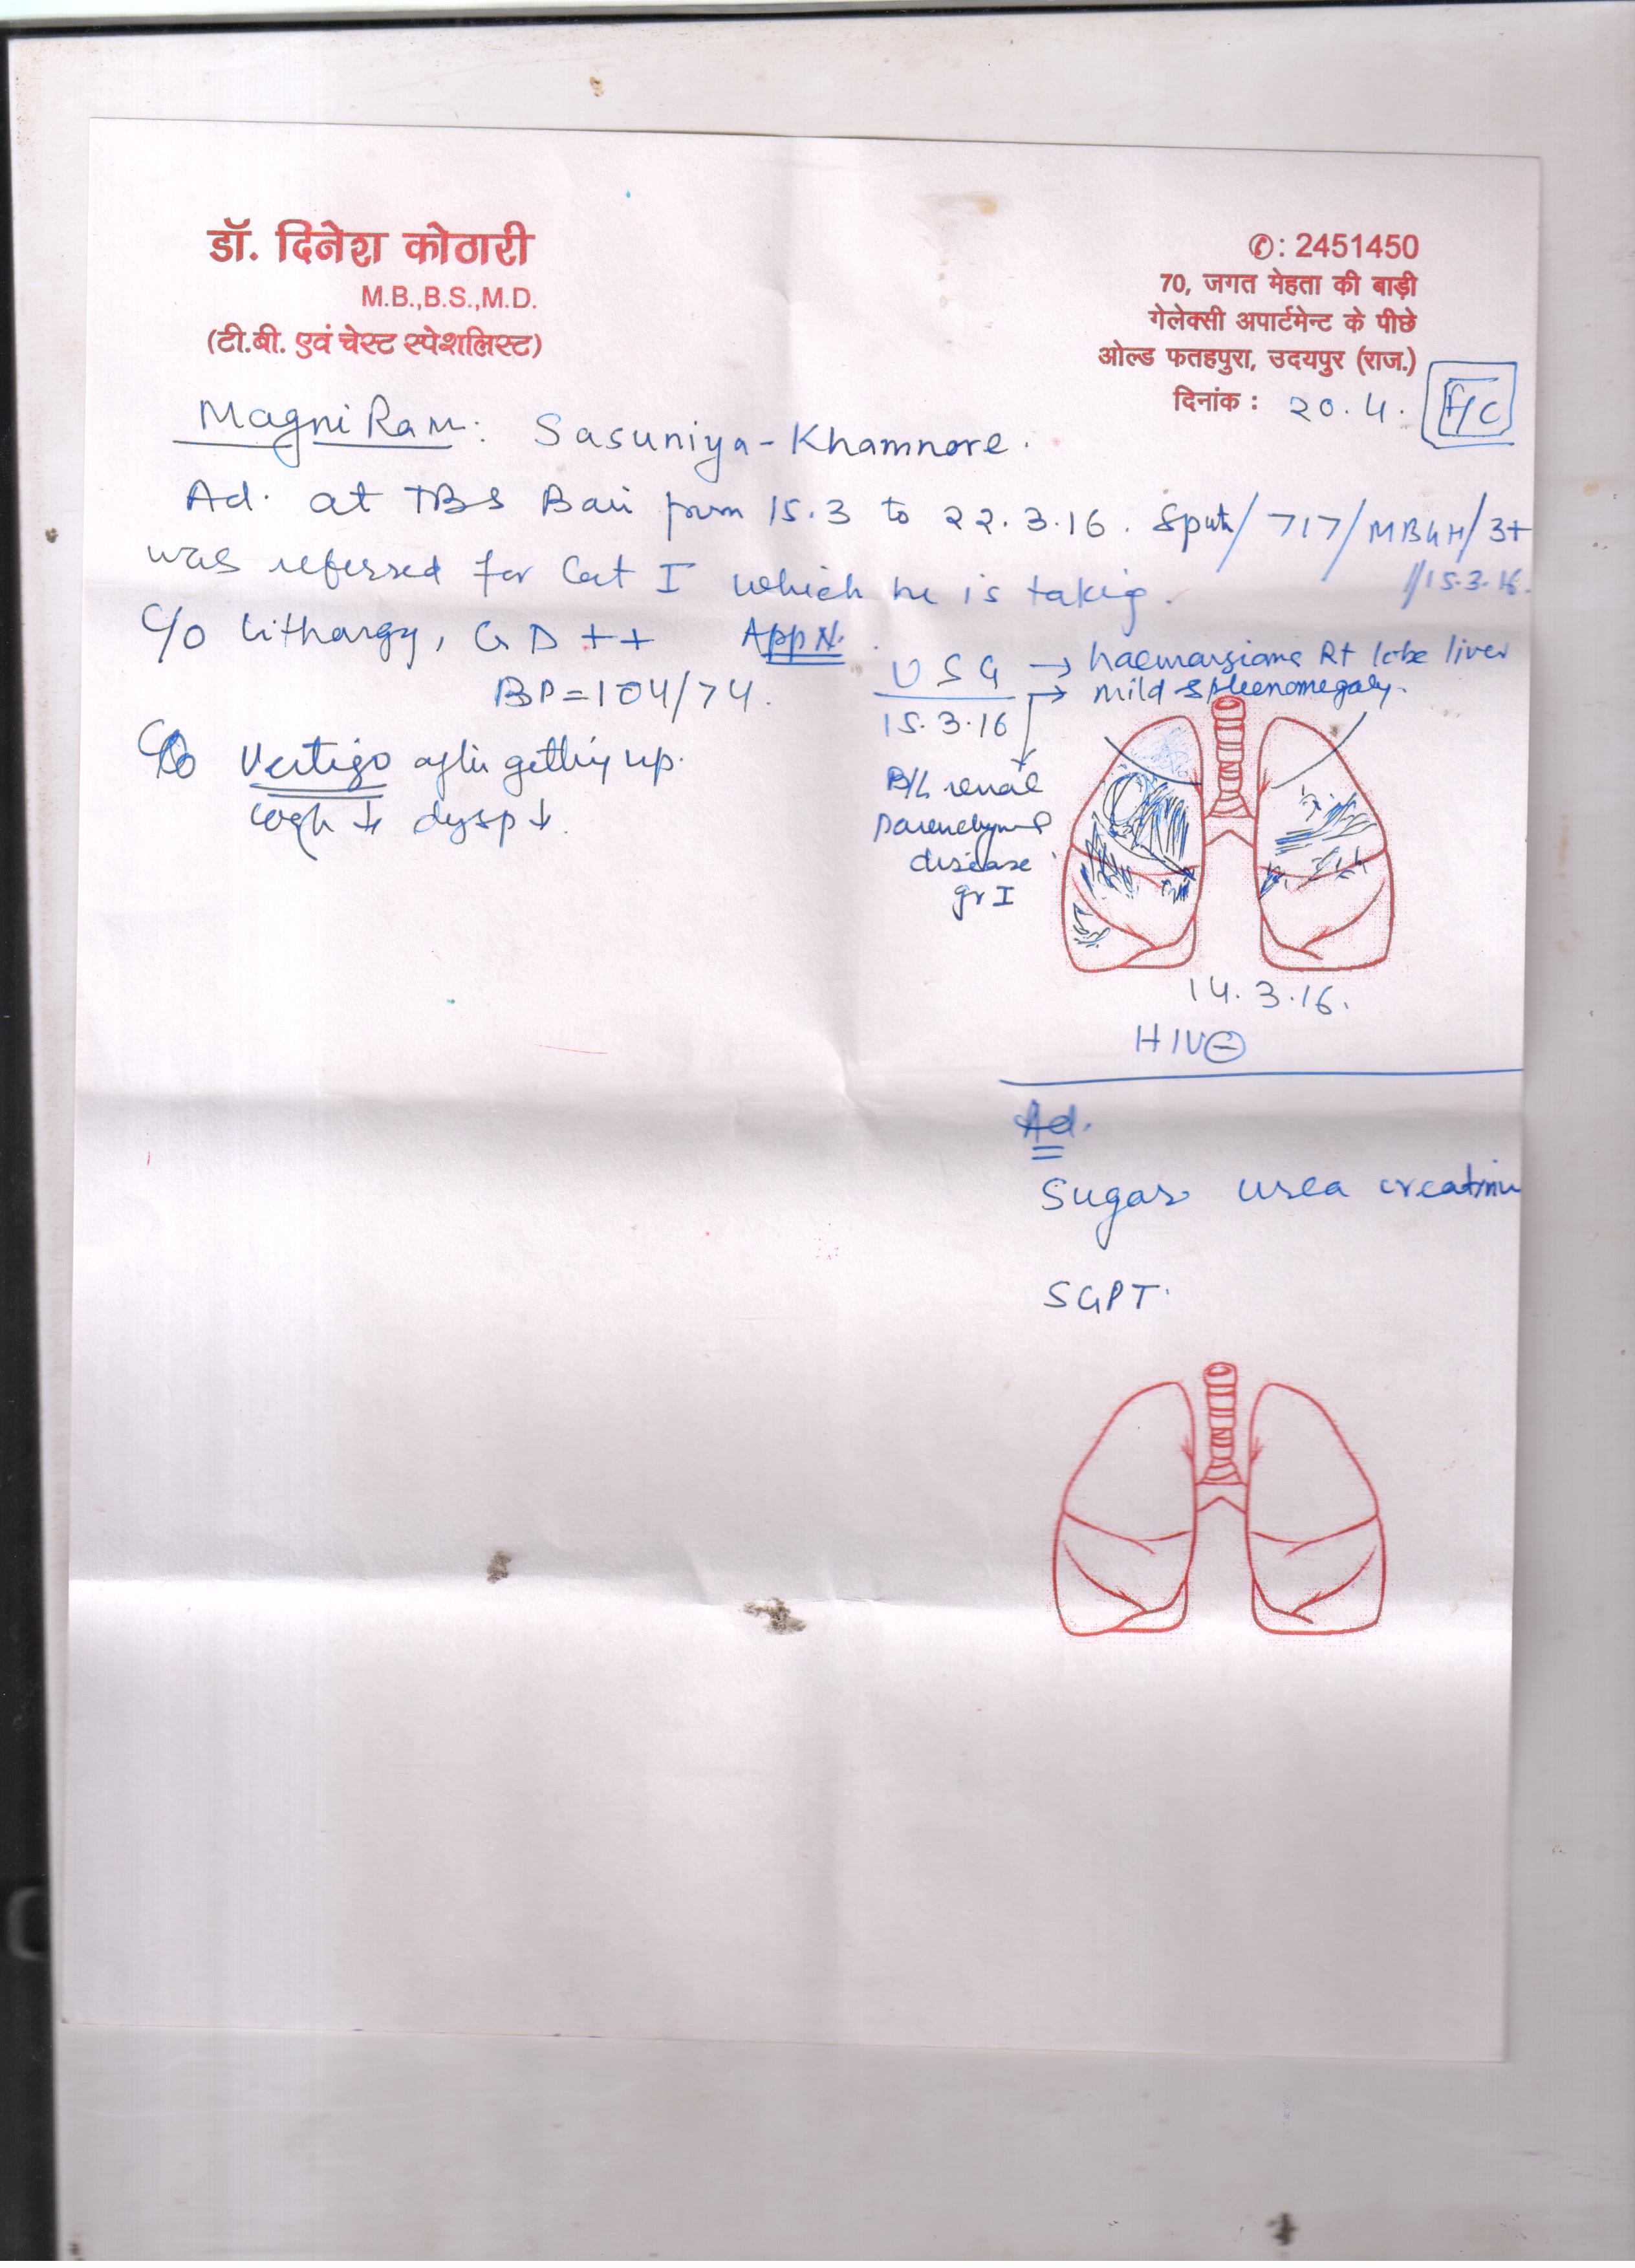 डॉ. दिनेश कोठारी
M.B.,B.S.,M.D.
(टी.बी. एवं चेस्ट स्पेशलिस्ट)
✆: 2451450
70, जगत मेहता की बाड़ी
गेलेक्सी अपार्टमेन्ट के पीछे
ओल्ड फतहपुरा, उदयपुर (राज.)
दिनांक : 20.4. F/C
Magni Ram: Sasuniya-Khamnore.
Ad. at TBS Bari from 15.3 to 22.3.16. Sput/717/MBGH/3+
//15.3.16.
was referred for Cat I which he is taking.
C/o lithargy, GD++ App N.
BP=104/74.
USG → haemangioma Rt lobe liver
15.3.16 → mild spleenomegaly.
B/L renal
parenchymal
disease
gr I
C/o Vertigo after getting up.
cogh ↓ dysp ↓.
14.3.16.
HIV⊖
Ad.
Sugar urea creatinin
SGPT.